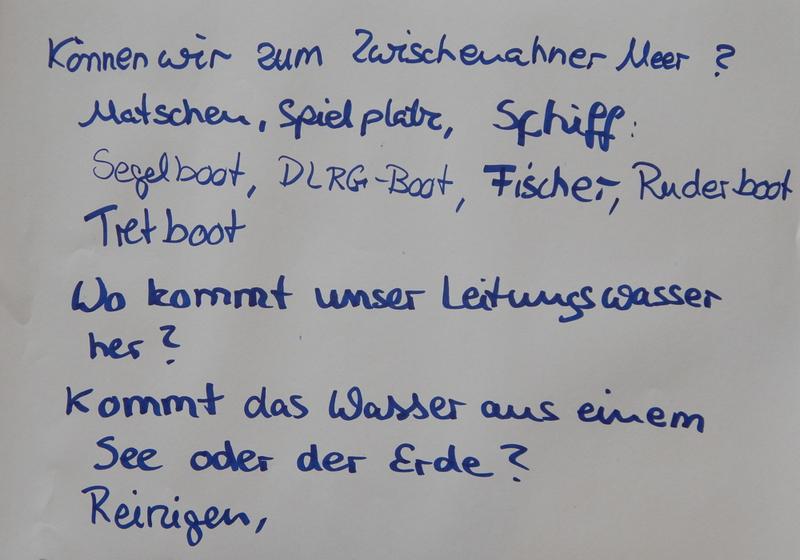 Können wir zum Zwischenahner Meer?
Matschen, Spielplatz, Schiff:
Segelboot, DLRG-Boot, Fischer, Ruderboot
Tretboot
Wo kommt unser Leitungswasser
her?
Kommt das Wasser aus einem
See oder der Erde?
Reinigen,